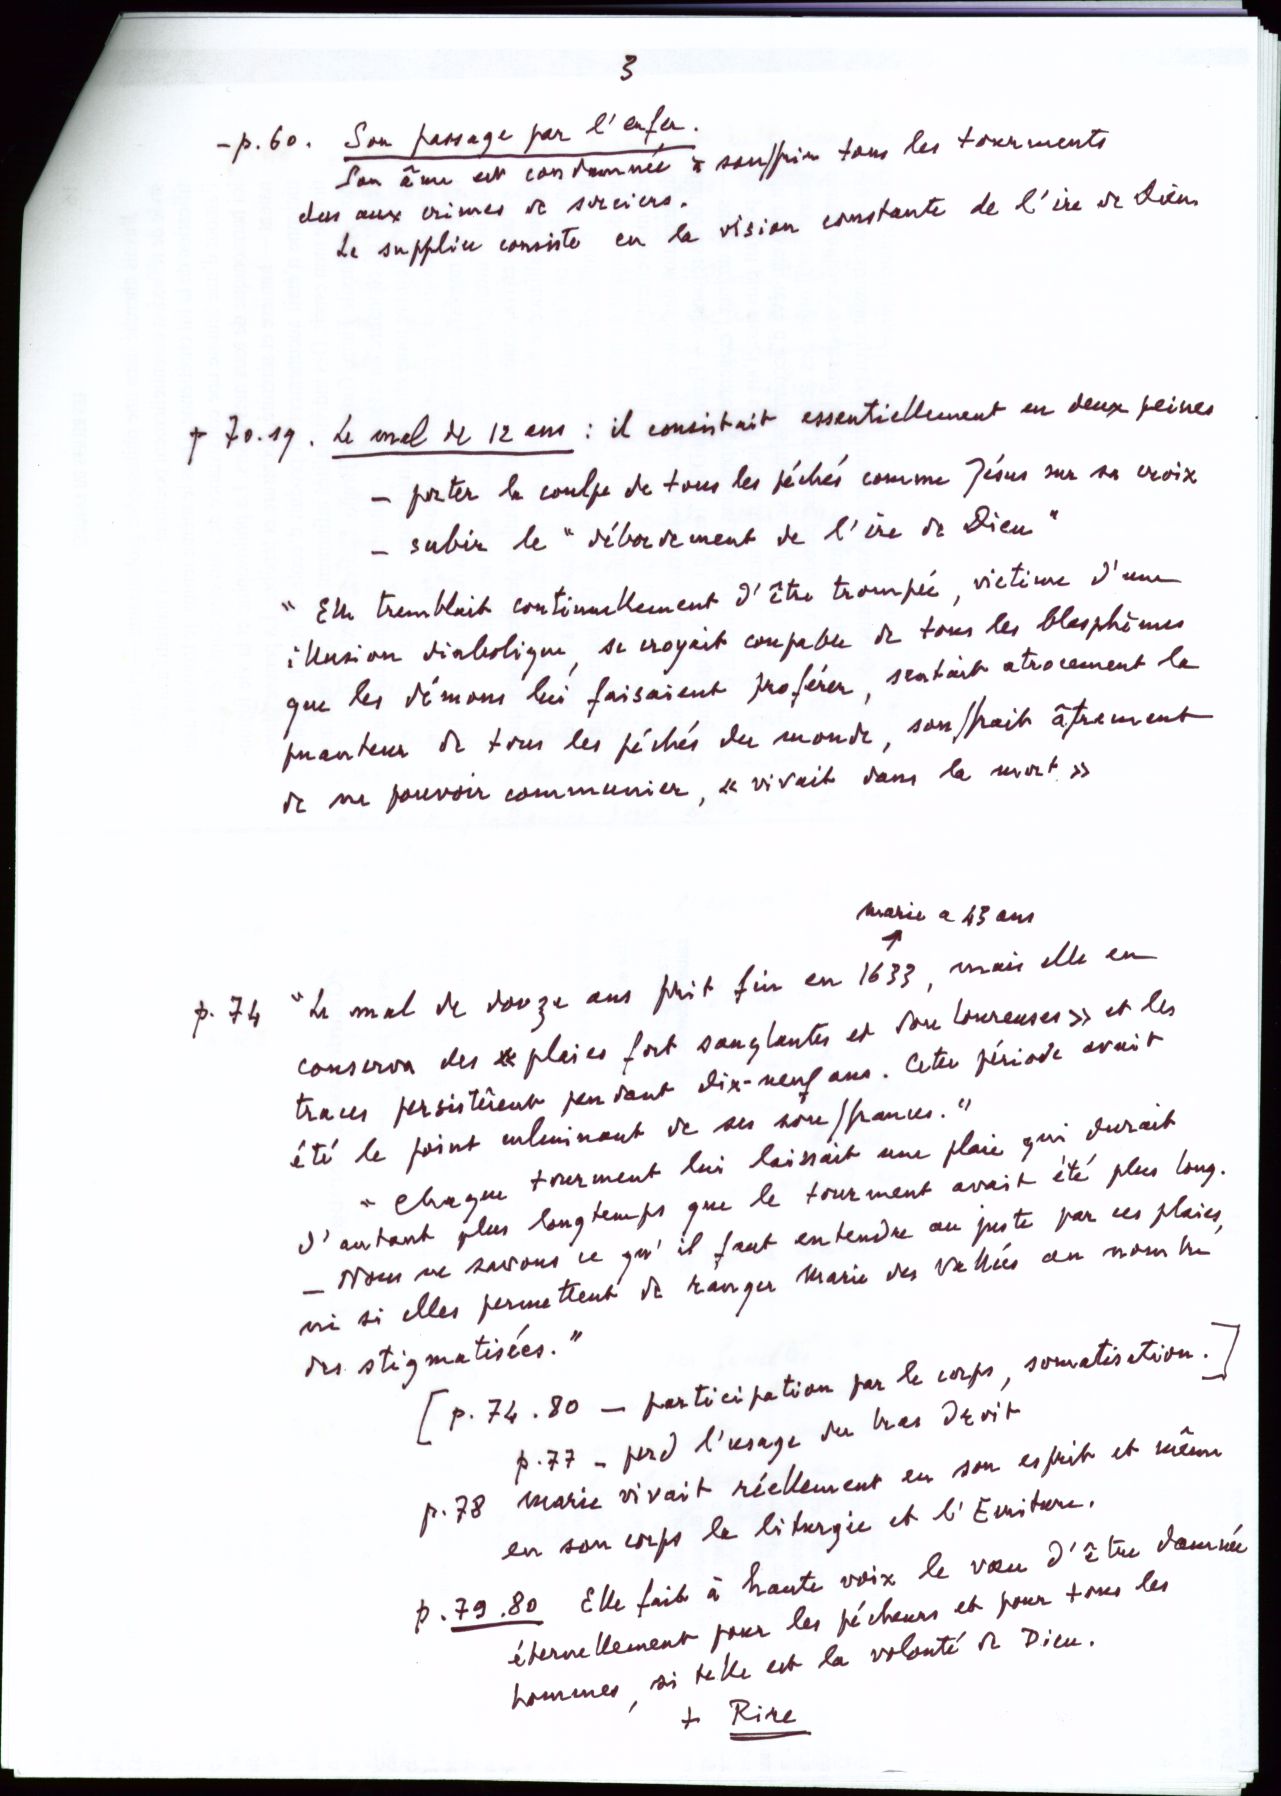 3
- p. 60. Son passage par l'enfer.
Son âme est condamnée à souffrir tous les tourments
dus aux crimes de sorciers.
Le supplice consiste en la vision constante de l'ire de Dieu
p 70.19. Le mal de 12 ans : il consistait essentiellement en deux peines
– porter la coulpe de tous les péchés comme Jésus sur sa croix
– subir le "débordement de l'ire de Dieu"
" Elle tremblait continuellement d'être trompée, victime d'une
illusion diabolique, se croyait coupable de tous les blasphèmes
que les démons lui faisaient proférer, sentait atrocement la
puanteur de tous les péchés du monde, souffrait âprement
de ne pouvoir communier, « vivait dans la mort »
Marie a 43 ans
p. 74 "Le mal de douze ans prit fin en 1633, mais elle en
conserva des « plaies fort sanglantes et douloureuses » et les
traces persistèrent pendant dix-neuf ans. Cette période avait
été le point culminant de ses souffrances."
" Chaque tourment lui laissait une plaie qui durait
d'autant plus longtemps que le tourment avait été plus long.
– Nous ne savons ce qu'il faut entendre au juste par ces plaies,
ni si elles permettent de ranger Marie des Vallées au nombre
des stigmatisées."
[p. 74.80 – participation par le corps, somatisation.]
p. 77 – perd l'usage du bras droit
p. 78 Marie vivait réellement en son esprit et même
en son corps la liturgie et l'Ecriture.
p. 79.80 Elle fait à haute voix le vœu d'être damnée
éternellement pour les pécheurs et pour tous les
hommes, si telle est la volonté de Dieu.
+ Rire